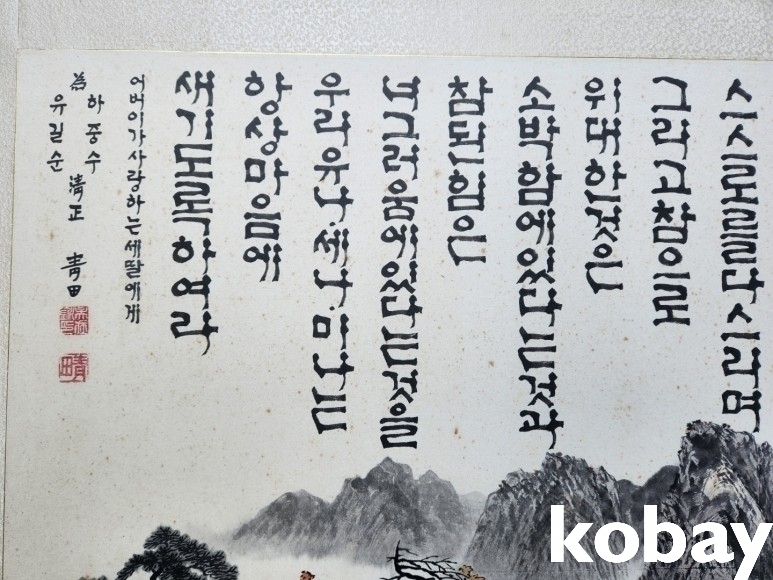 스스로를다스리며
그리고참으로
위대한것은
소박함에있다는것과
참된힘은
너그러움에있다는것을
우리유나.세나.미나는
항상마음에
새기도록하여라
어버이가사랑하는세딸에게
為 하중수
유길순
淸正 靑田
kobay